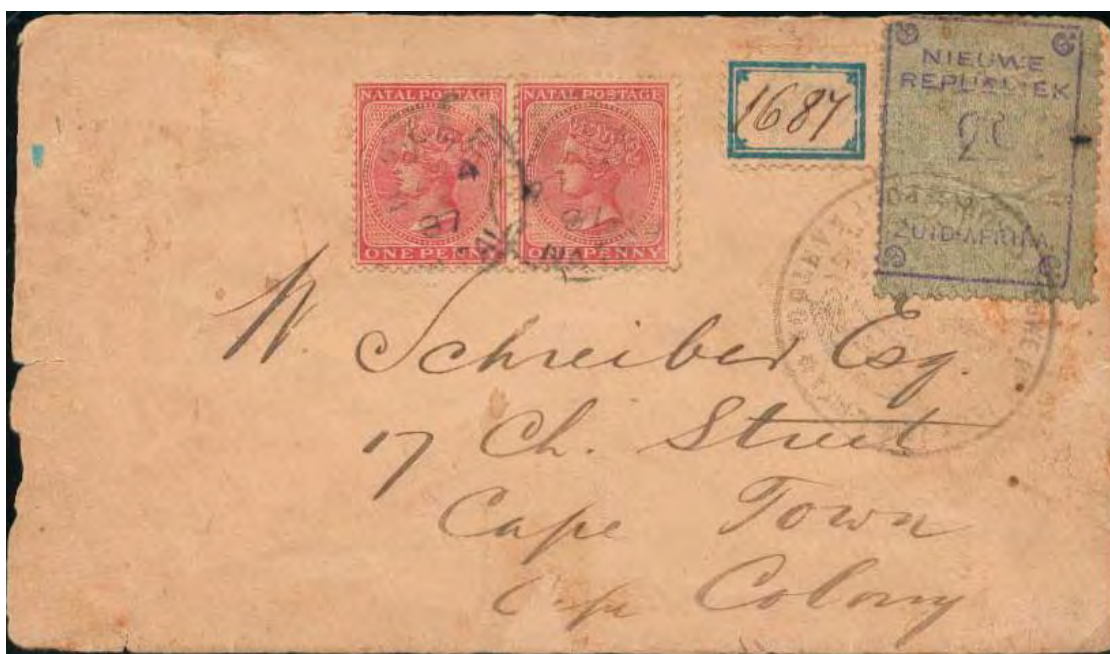 NATAL POSTAGE
ONE PENNY
NATAL POSTAGE
ONE PENNY
1687
NIEUWE
REPUBLIEK
2d
ZUID-AFRIKA
W. Schreiber Esq.
17 Ch. Street
Cape Town
Cape Colony